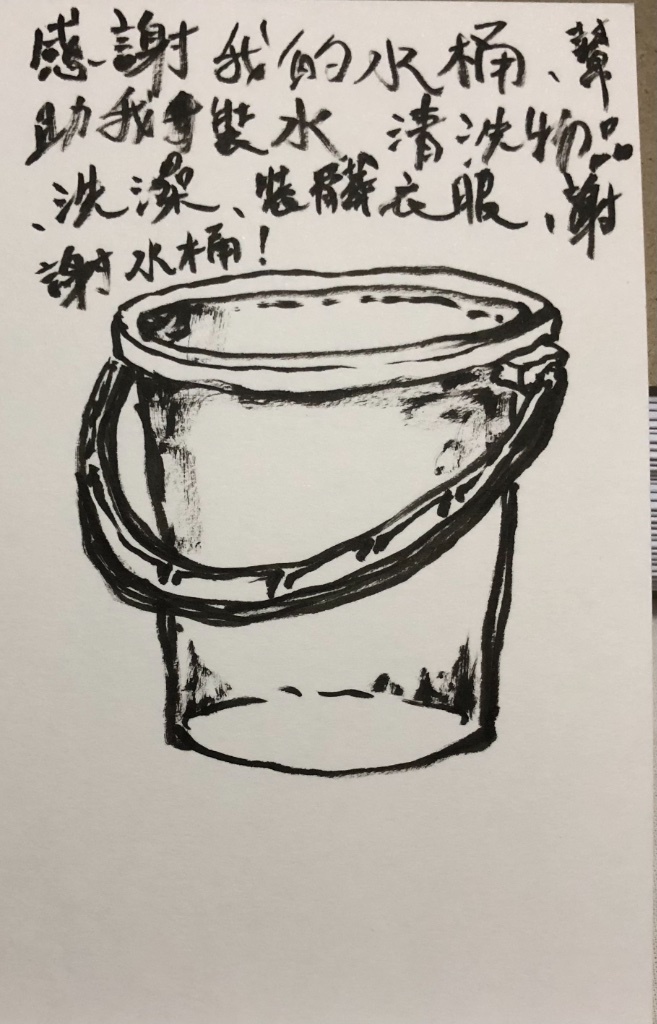 感謝我的水桶、幫
助我裝水 清洗物品
、洗澡、裝髒衣服、謝
謝水桶！